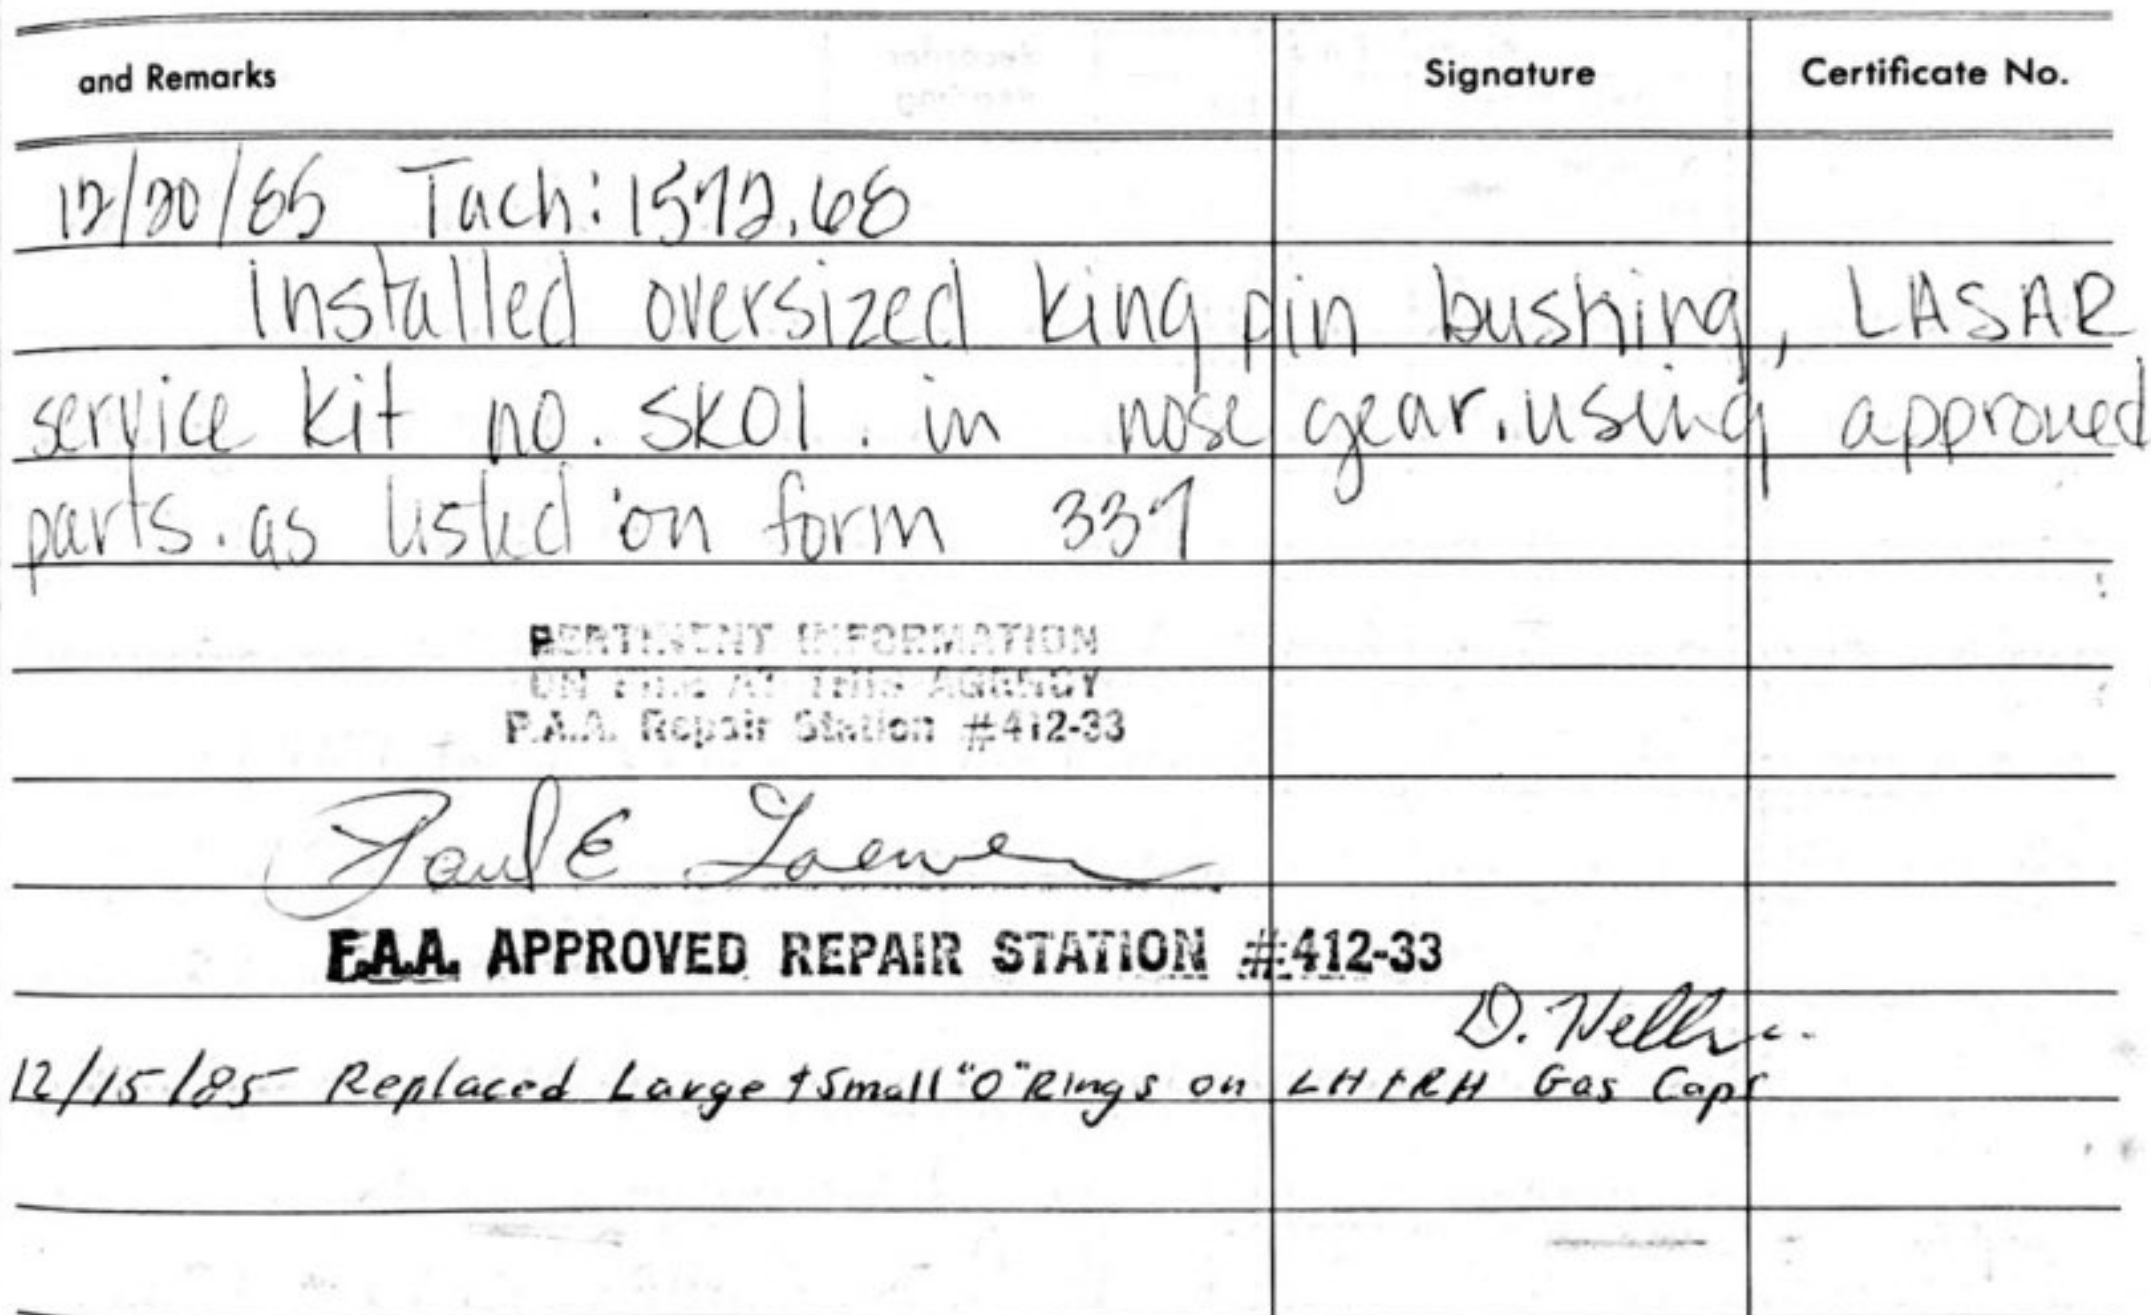 and Remarks Signature Certificate No.
12/20/85 Tach: 1572.68
installed oversized king pin bushing, LASAR
service kit no. SK01. in nose gear. using approved
parts. as listed on form 337
PERTINENT INFORMATION
ON FILE AT THIS AGENCY
F.A.A. Repair Station #412-33
Paul E Loewen
F.A.A. APPROVED REPAIR STATION #412-33
D.
12/15/85 Replaced Large + Small "O" Rings on LH + RH Gas Caps